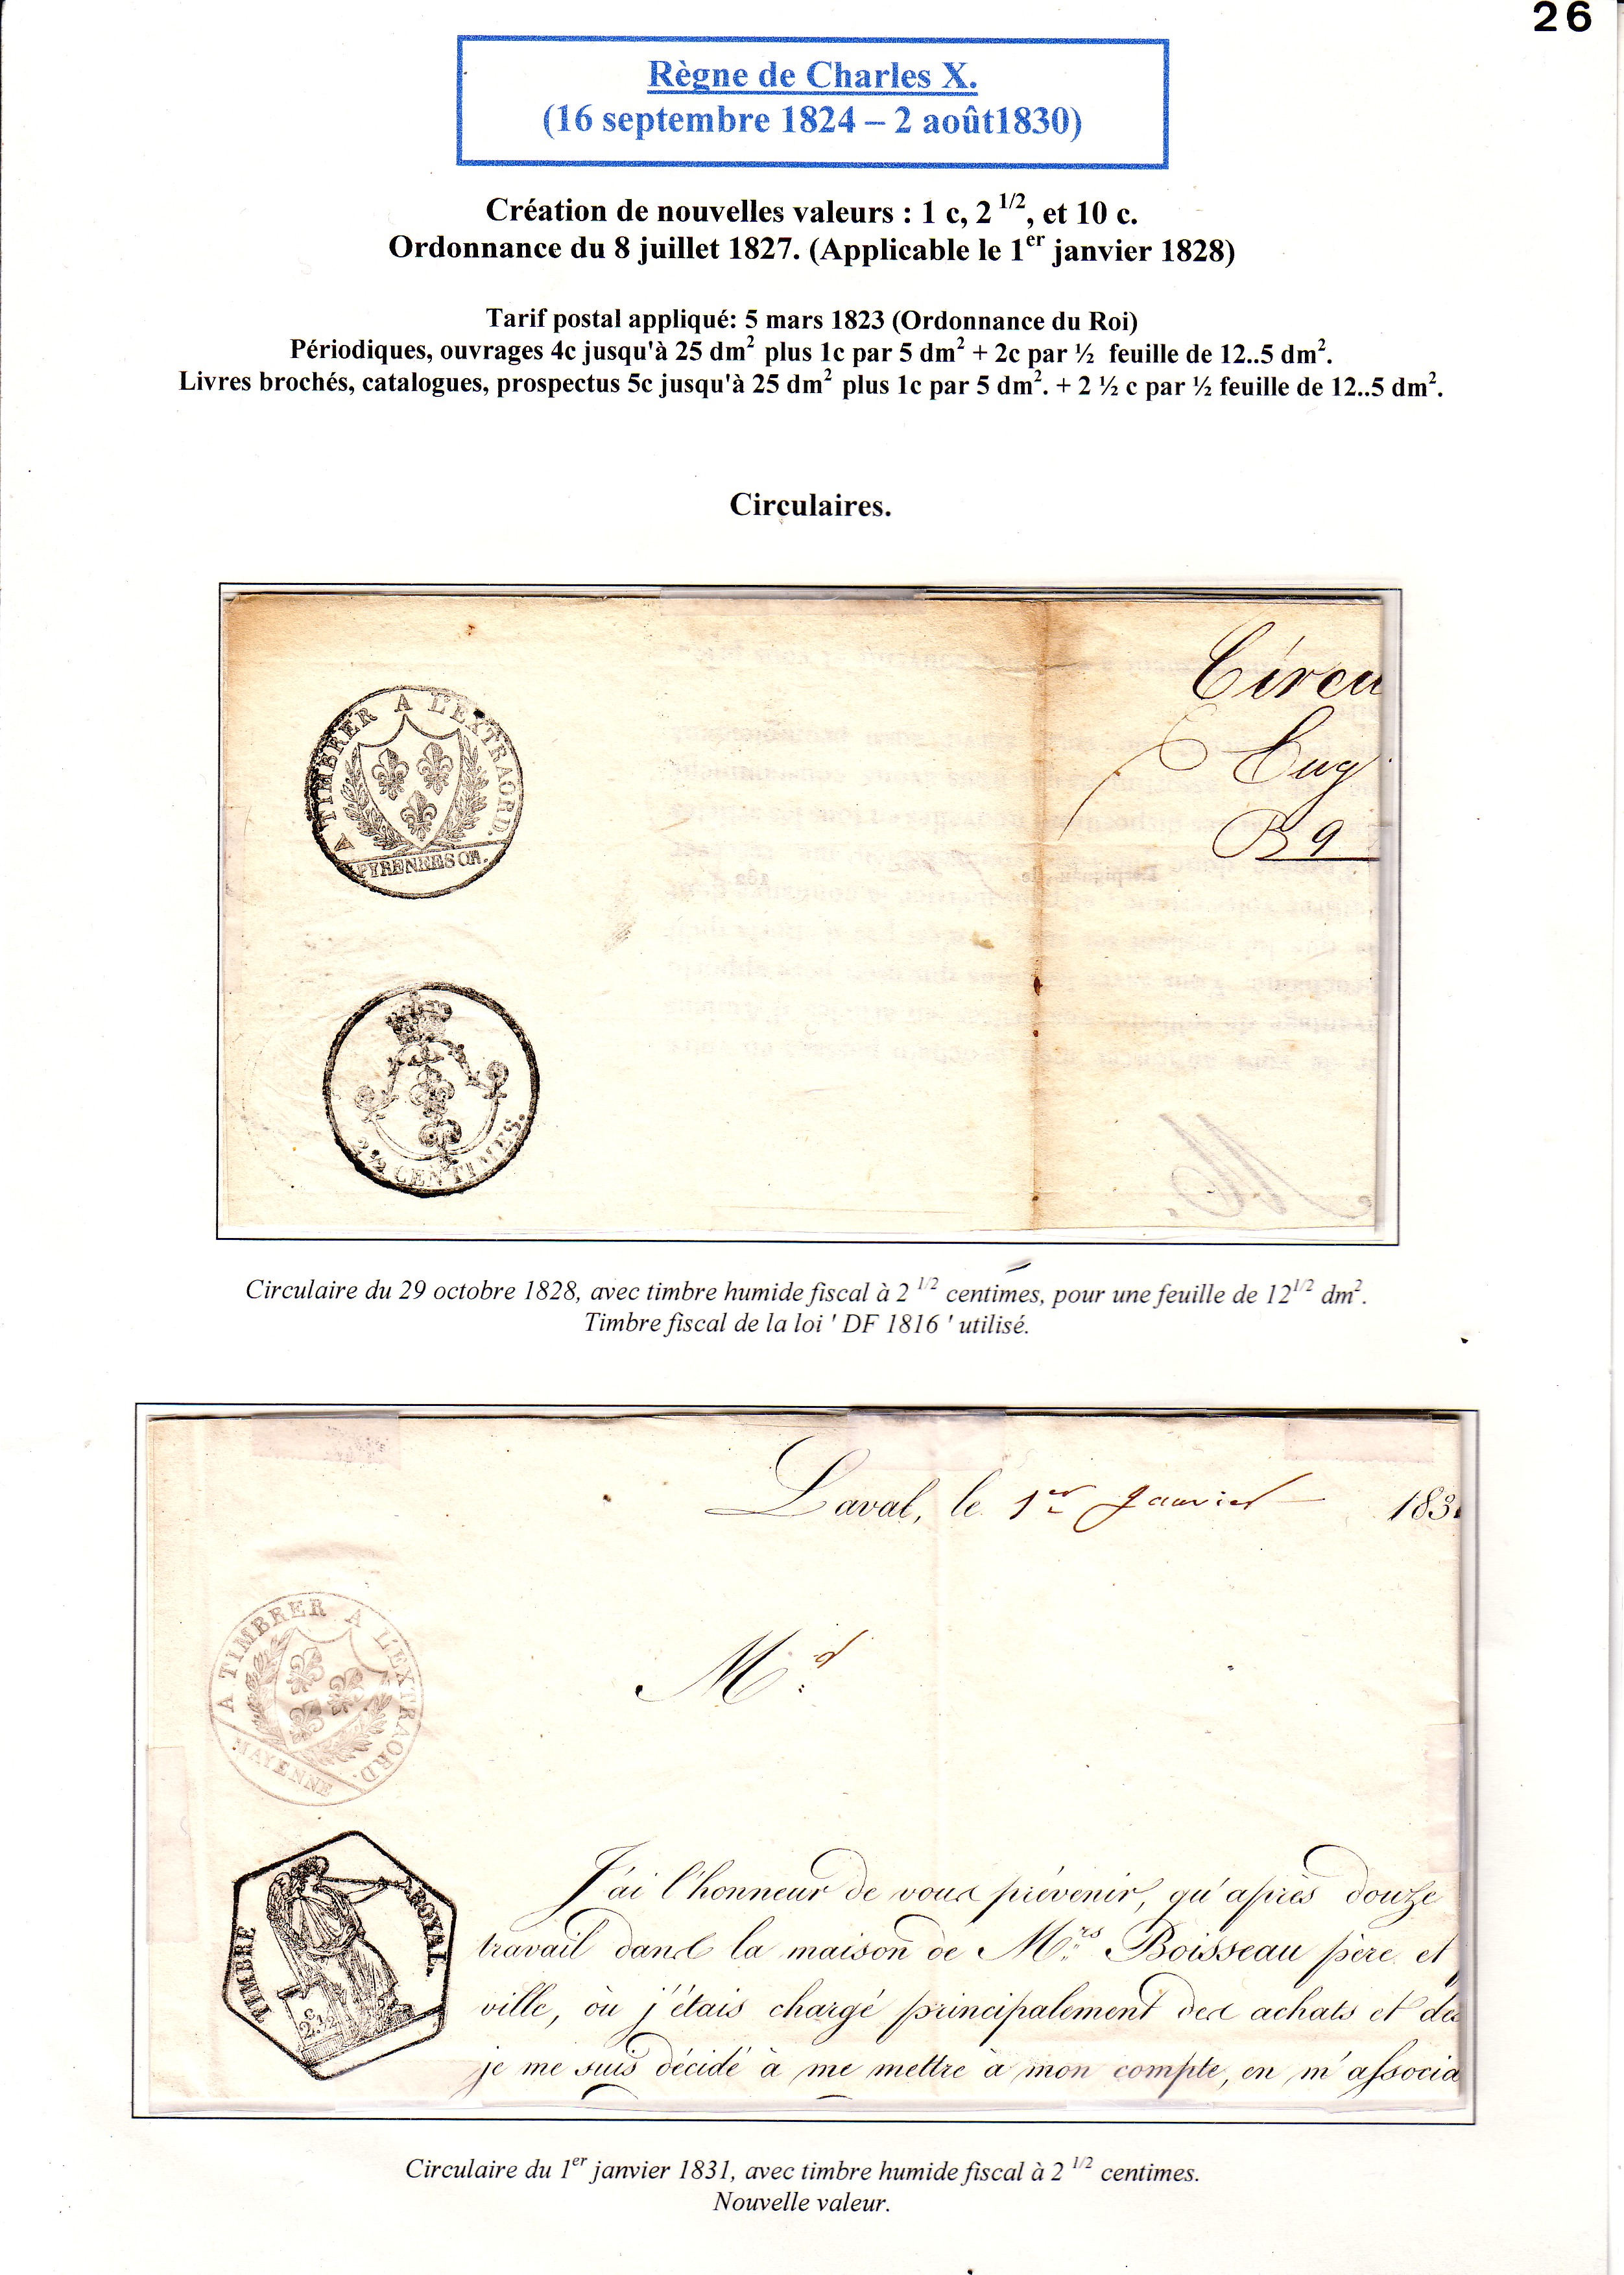 26
Règne de Charles X.
(16 septembre 1824 – 2 août1830)
Création de nouvelles valeurs : 1 c, 2 1/2, et 10 c.
Ordonnance du 8 juillet 1827. (Applicable le 1er janvier 1828)
Tarif postal appliqué: 5 mars 1823 (Ordonnance du Roi)
Périodiques, ouvrages 4c jusqu'à 25 dm2 plus 1c par 5 dm2 + 2c par ½ feuille de 12..5 dm2.
Livres brochés, catalogues, prospectus 5c jusqu'à 25 dm2 plus 1c par 5 dm2. + 2 ½ c par ½ feuille de 12..5 dm2.
Circulaires.
A TIMBRER A L'EXTRAORD.
PYRENEES OR.
Circu
Eug
2 ½ CENTIMES.
Circulaire du 29 octobre 1828, avec timbre humide fiscal à 2 1/2 centimes, pour une feuille de 12 1/2 dm2.
Timbre fiscal de la loi ' DF 1816 ' utilisé.
Laval, le 1er Janvier 1831
A TIMBRER A L'EXTRAORD.
MAYENNE
M
TIMBRE ROYAL.
J'ai l'honneur de vous prévenir, qu'après douze
travail dans la maison de Mrs Boisseau père et
ville, où j'étais chargé principalement des achats et des
je me suis décidé à me mettre à mon compte, en m'associa
Circulaire du 1er janvier 1831, avec timbre humide fiscal à 2 1/2 centimes.
Nouvelle valeur.